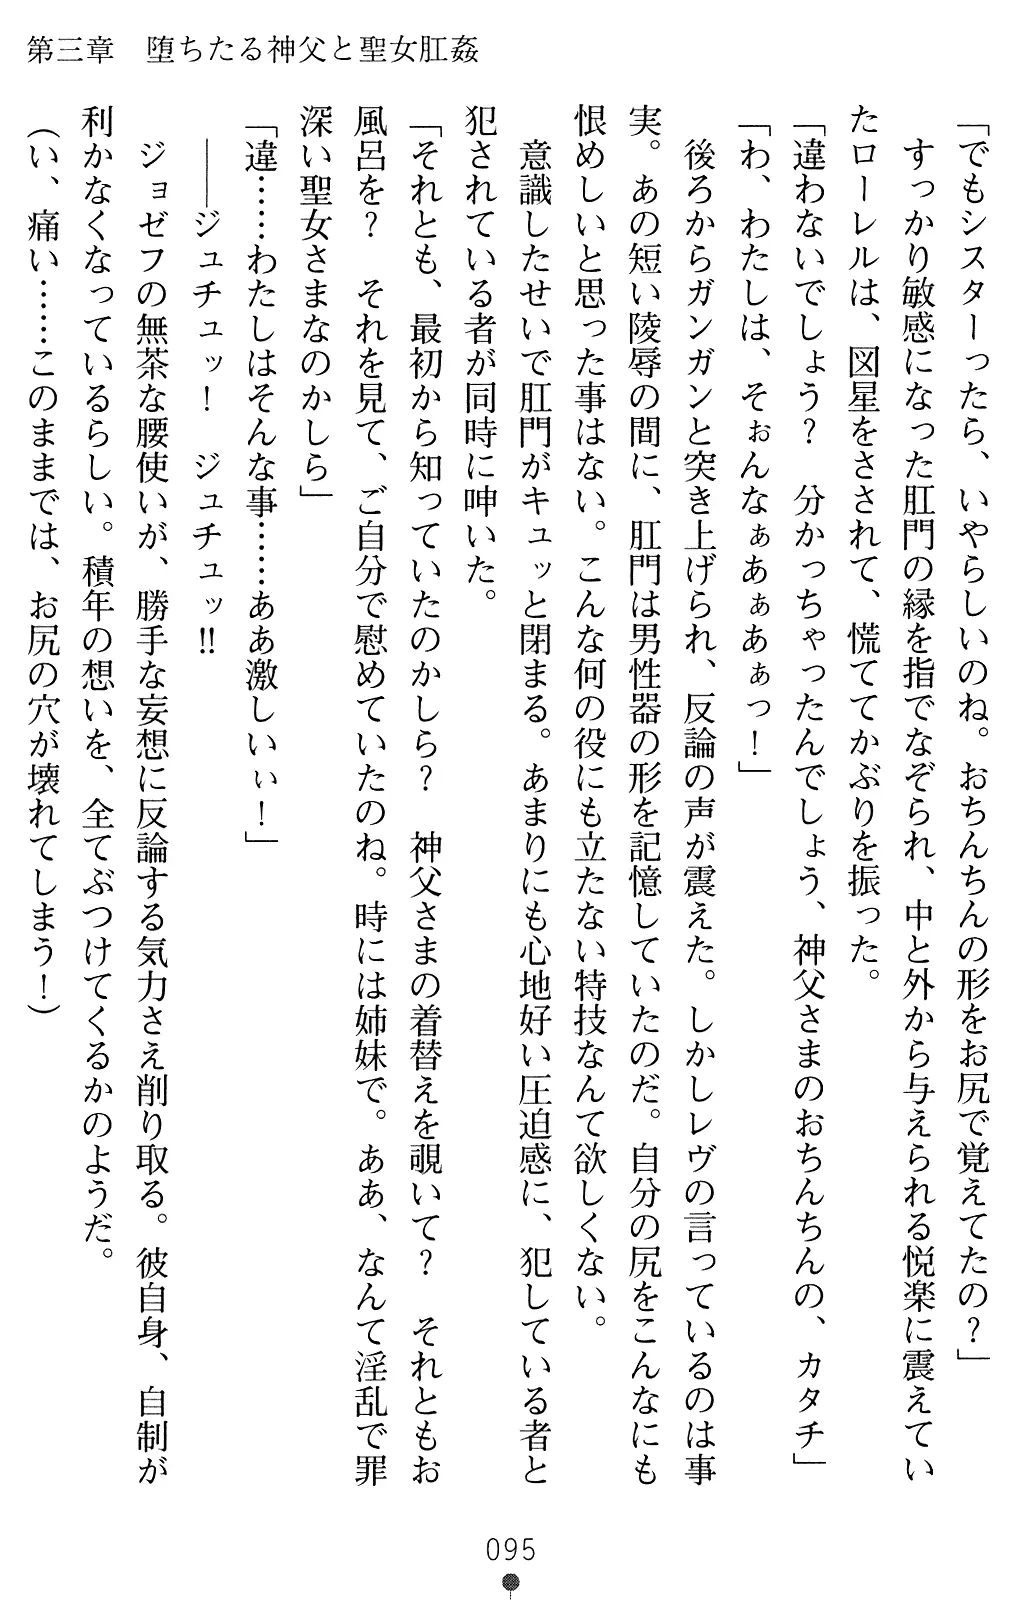 第三章　堕ちたる神父と聖女肛姦
「でもシスターったら、いやらしいのね。おちんちんの形をお尻で覚えてたの？」
　すっかり敏感になった肛門の縁を指でなぞられ、中と外から与えられる悦楽に震えてい
たローレルは、図星をさされて、慌ててかぶりを振った。
「違わないでしょう？　分かっちゃったんでしょう、神父さまのおちんちんの、カタチ」
「わ、わたしは、そぉんなぁあぁあぁっ！」
　後ろからガンガンと突き上げられ、反論の声が震えた。しかしレヴの言っているのは事
実。あの短い陵辱の間に、肛門は男性器の形を記憶していたのだ。自分の尻をこんなにも
恨めしいと思った事はない。こんな何の役にも立たない特技なんて欲しくない。
　意識したせいで肛門がキュッと閉まる。あまりにも心地好い圧迫感に、犯している者と
犯されている者が同時に呻いた。
「それとも、最初から知っていたのかしら？　神父さまの着替えを覗いて？　それともお
風呂を？　それを見て、ご自分で慰めていたのね。時には姉妹で。ああ、なんて淫乱で罪
深い聖女さまなのかしら」
「違……わたしはそんな事……ああ激しいぃ！」
　――ジュチュッ！　ジュチュッ!!
　ジョゼフの無茶な腰使いが、勝手な妄想に反論する気力さえ削り取る。彼自身、自制が
利かなくなっているらしい。積年の想いを、全てぶつけてくるかのようだ。
（い、痛い……このままでは、お尻の穴が壊れてしまう！）
095